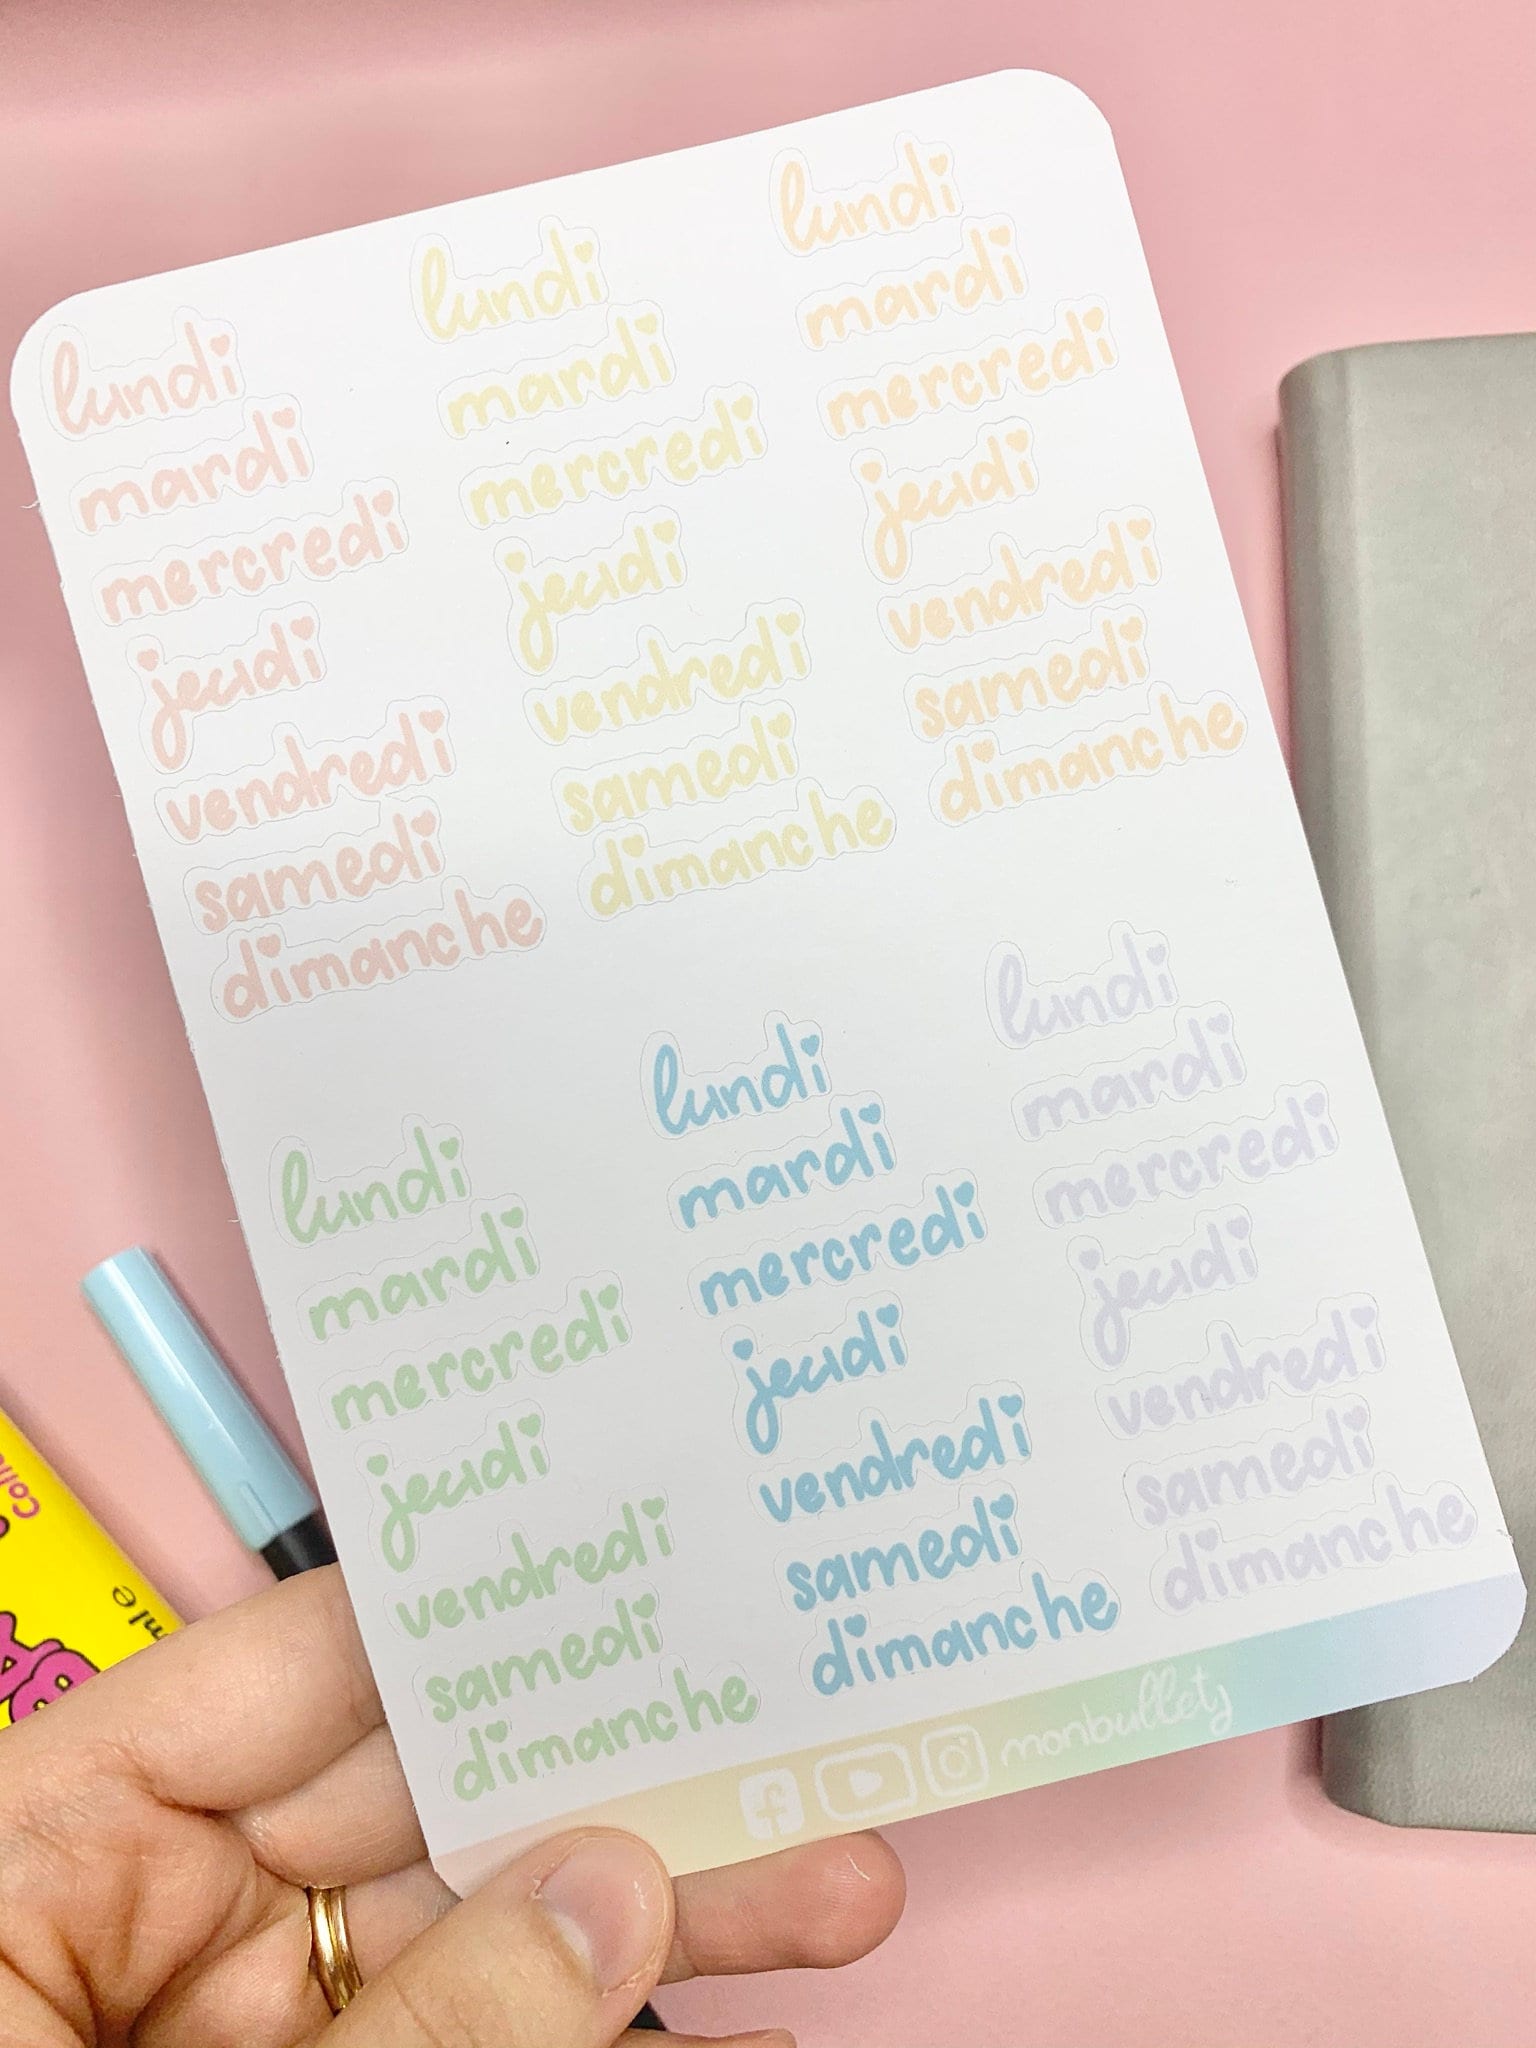 lundi
mardi
mercredi
jeudi
vendredi
samedi
dimanche
lundi
mardi
mercredi
jeudi
vendredi
samedi
dimanche
lundi
mardi
mercredi
jeudi
vendredi
samedi
dimanche
lundi
mardi
mercredi
jeudi
vendredi
samedi
dimanche
lundi
mardi
mercredi
jeudi
vendredi
samedi
dimanche
lundi
mardi
mercredi
jeudi
vendredi
samedi
dimanche
monbulletj